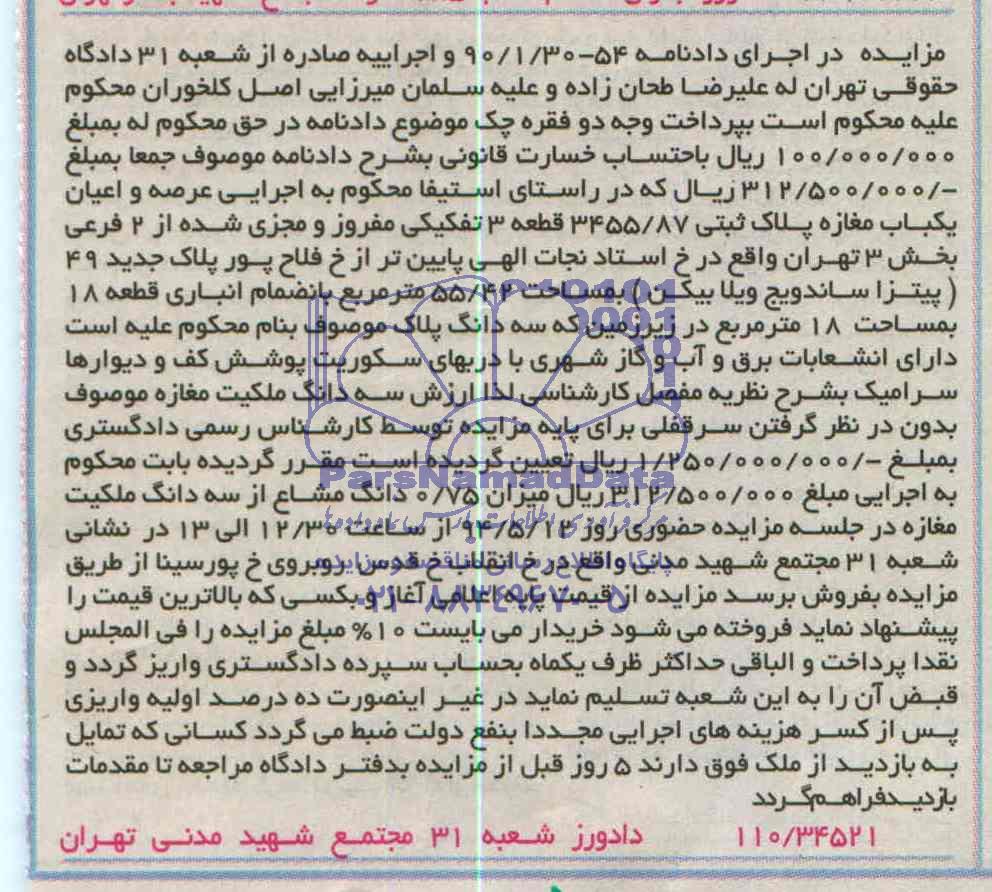 مزایده در اجرای دادنامه ۵۴-۹۰/۱/۳۰ و اجراییه صادره از شعبه ۳۱ دادگاه
حقوقی تهران له علیرضا طحان زاده و علیه سلمان میرزایی اصل کلخوران محکوم
علیه محکوم است بپرداخت وجه دو فقره چک موضوع دادنامه در حق محکوم له بمبلغ
۱۰۰/۰۰۰/۰۰۰ ریال باحتساب خسارت قانونی بشرح دادنامه موصوف جمعا بمبلغ
-/۳۱۲/۵۰۰/۰۰۰ ریال که در راستای استیفا محکوم به اجرایی عرصه و اعیان
یکباب مغازه پلاک ثبتی ۳۴۵۵/۸۷ قطعه ۳ تفکیکی مفروز و مجزی شده از ۲ فرعی
بخش ۳ تهران واقع در خ استاد نجات الهی پایین تر از خ فلاح پور پلاک جدید ۴۹
( پیتزا ساندویچ ویلا بیکن ) بمساحت ۵۵/۴۲ مترمربع بانضمام انباری قطعه ۱۸
بمساحت ۱۸ مترمربع در زیرزمین که سه دانگ پلاک موصوف بنام محکوم علیه است
دارای انشعابات برق و آب و گاز شهری با دربهای سکوریت پوشش کف و دیوارها
سرامیک بشرح نظریه مفصل کارشناسی لذا ارزش سه دانگ ملکیت مغازه موصوف
بدون در نظر گرفتن سرقفلی برای پایه مزایده توسط کارشناس رسمی دادگستری
بمبلغ -/۱/۲۵۰/۰۰۰/۰۰۰ ریال تعیین گردیده است مقرر گردیده بابت محکوم
به اجرایی مبلغ ۳۱۲/۵۰۰/۰۰۰ ریال میزان ۰/۷۵ دانگ مشاع از سه دانگ ملکیت
مغازه در جلسه مزایده حضوری روز ۹۴/۵/۱۲ از ساعت ۱۲/۳۰ الی ۱۳ در نشانی
شعبه ۳۱ مجتمع شهید مدنی واقع در خ انقلاب خ قدس روبروی خ پورسینا از طریق
مزایده بفروش برسد مزایده از قیمت پایه اعلامی آغاز و بکسی که بالاترین قیمت را
پیشنهاد نماید فروخته می شود خریدار می بایست ۱۰% مبلغ مزایده را فی المجلس
نقدا پرداخت و الباقی حداکثر ظرف یکماه بحساب سپرده دادگستری واریز گردد و
قبض آن را به این شعبه تسلیم نماید در غیر اینصورت ده درصد اولیه واریزی
پس از کسر هزینه های اجرایی مجددا بنفع دولت ضبط می گردد کسانی که تمایل
به بازدید از ملک فوق دارند ۵ روز قبل از مزایده بدفتر دادگاه مراجعه تا مقدمات
بازدیدفراهم‌گردد
۱۱۰/۳۴۵۲۱ دادورز شعبه ۳۱ مجتمع شهید مدنی تهران
ParsNamadData
۰۲۱-۸۸۳۴۹۶۷۰-۵